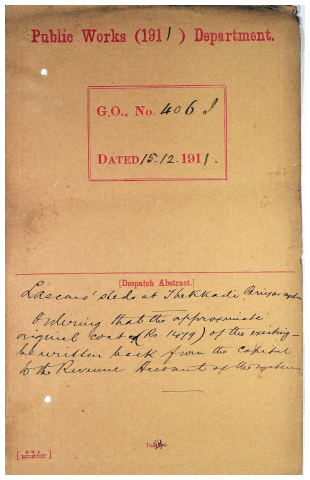 Public Works (1911) Department.
G.O., No. 406 I
DATED 15-12-1911.
[Despatch Abstract.]
Lascars' sheds at Thekkadi Periyar system
Ordering that the approximate
original cost (Rs 1479) of the existing
be written back from the capital
to the Revenue Account of the system